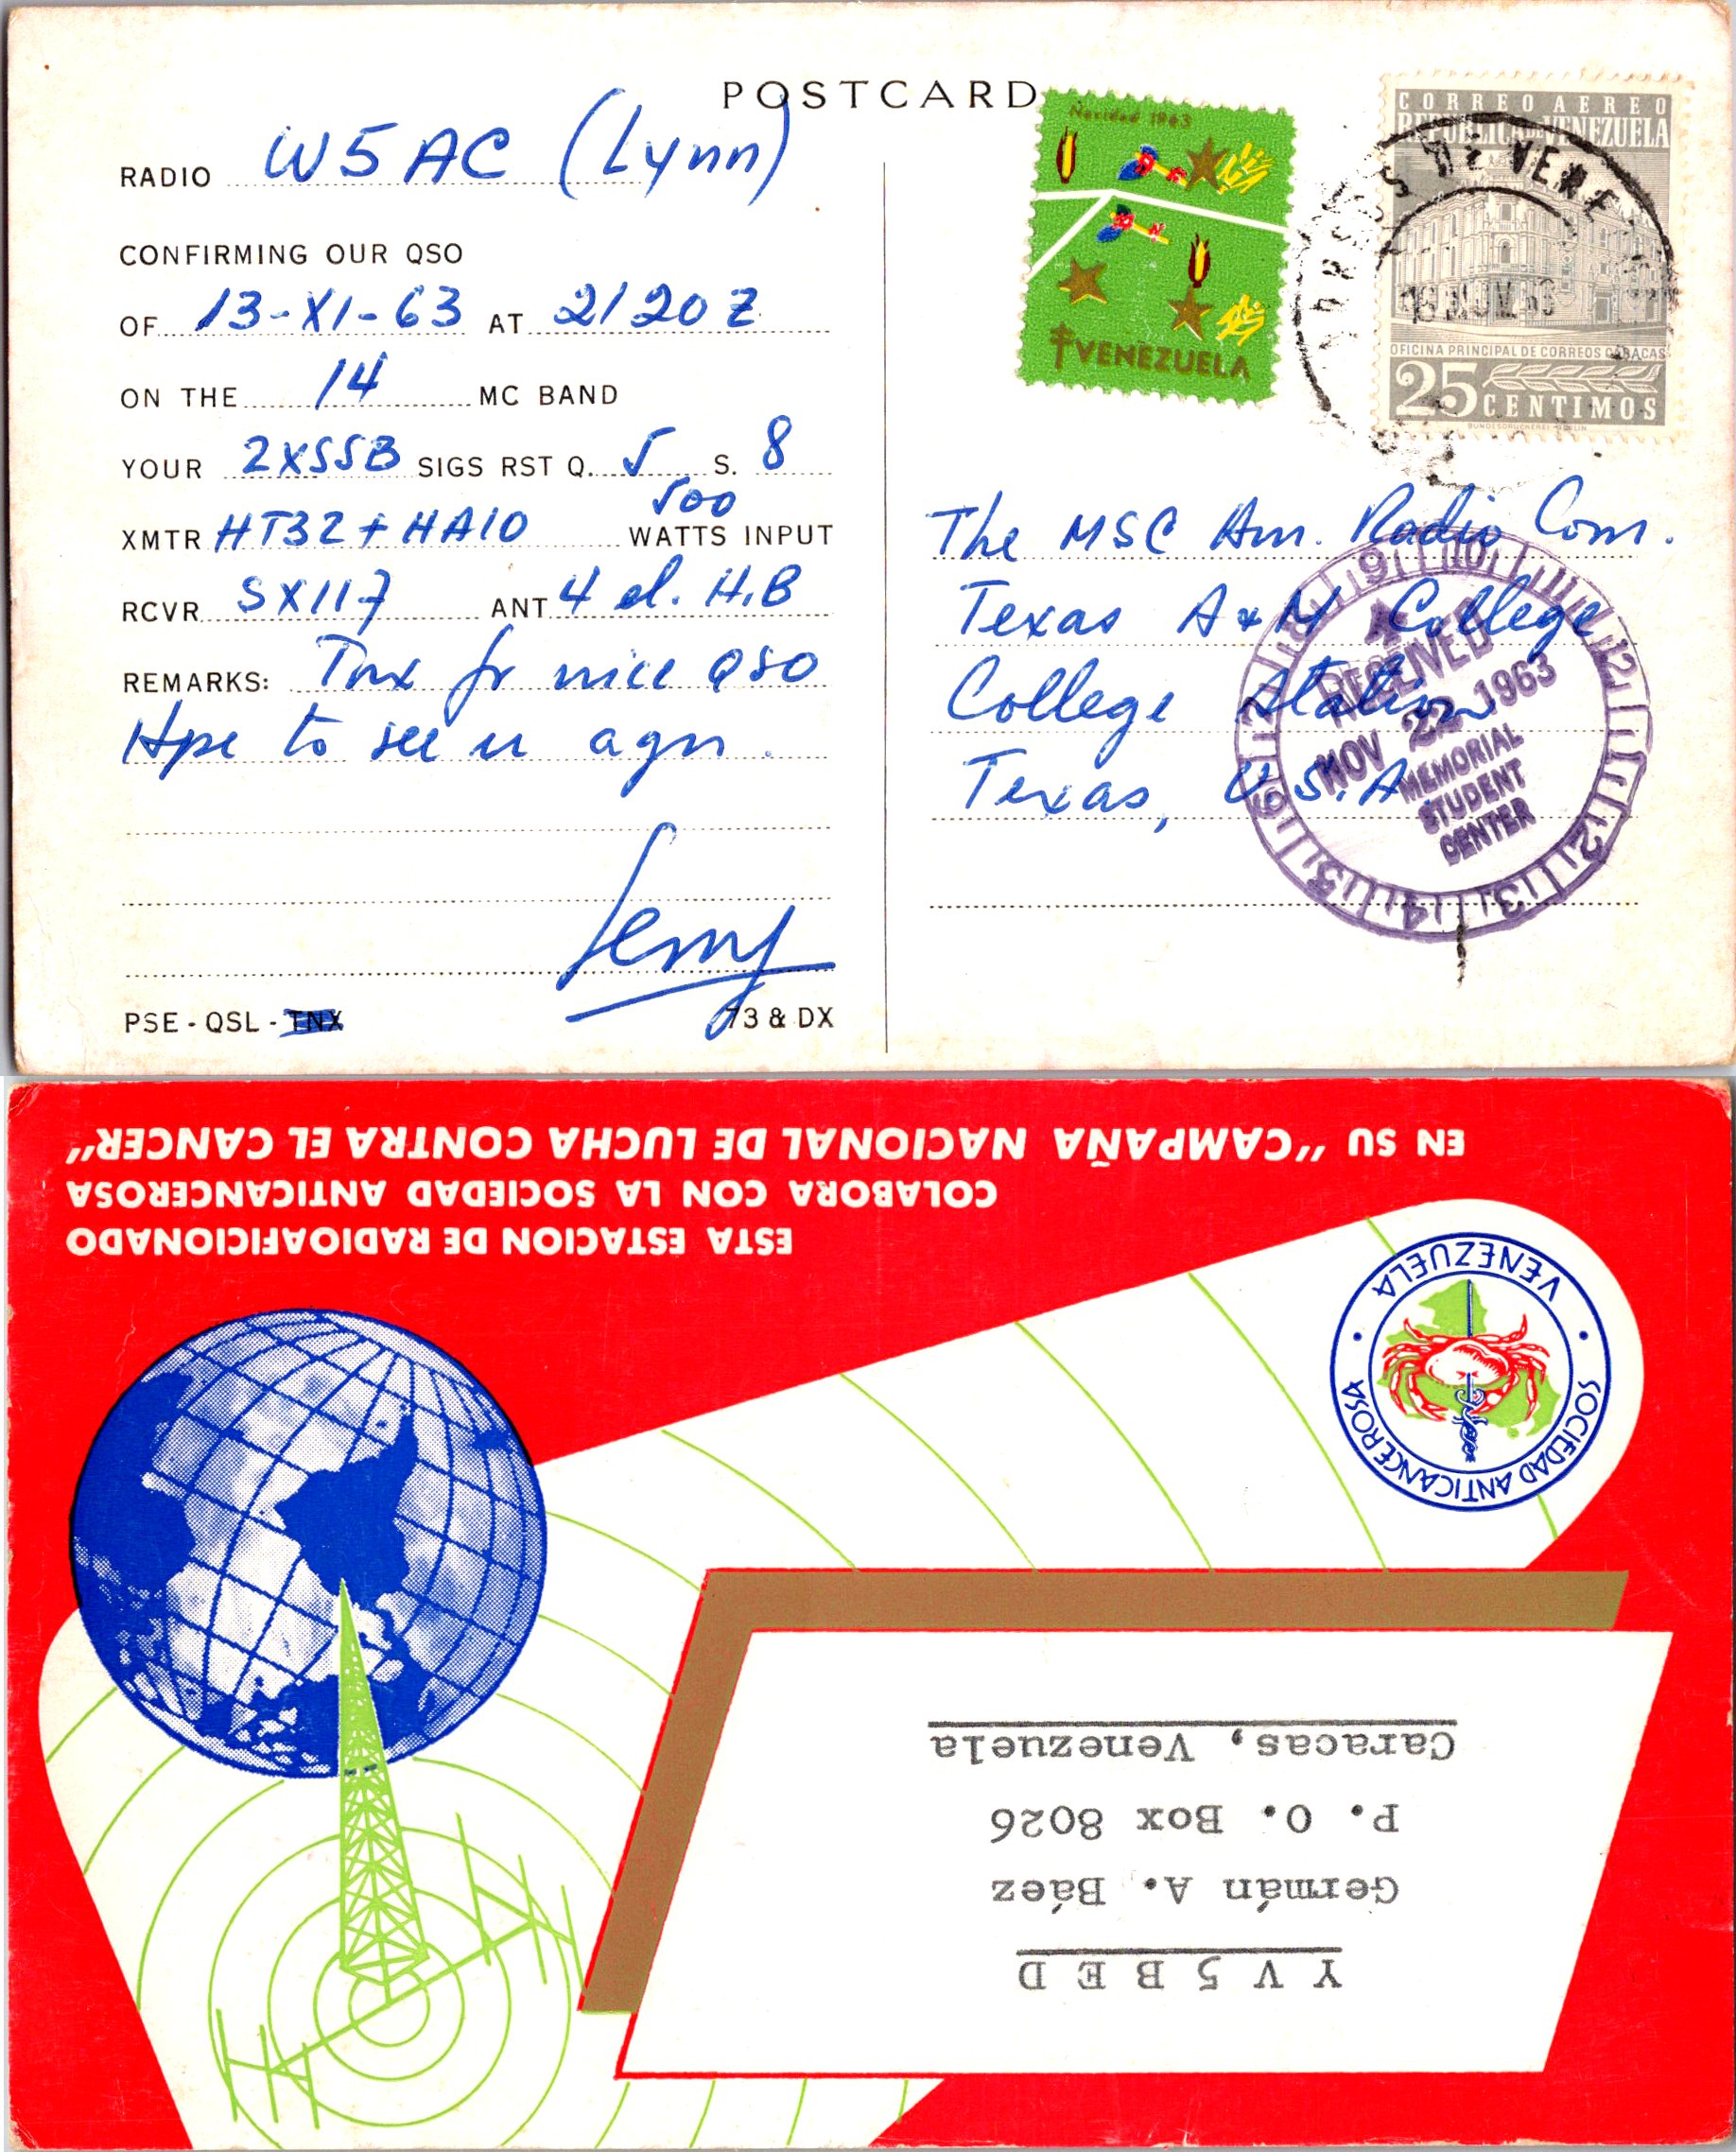 POSTCARD
RADIO W5AC (Lynn)
CONFIRMING OUR QSO
OF 13-XI-63 AT 2120Z
ON THE 14 MC BAND
YOUR 2XSSB SIGS RST Q. 5 S. 8
XMTR HT32 + HA10 500 WATTS INPUT
RCVR SX117 ANT 4 el. H.B
REMARKS: Tnx fr nice QSO
Hpe to see u agn.
PSE - QSL - TNX 73 & DX
Navidad 1963
VENEZUELA
CORREO AEREO
REPUBLICA DE VENEZUELA
OFICINA PRINCIPAL DE CORREOS CARACAS
25 CENTIMOS
BUNDESDRUCKEREI BERLIN
The MSC Am. Radio Com.
Texas A & M College
College Station
Texas, U.S.A.
RECEIVED
NOV 22 1963
MEMORIAL
STUDENT
CENTER
YV5BED
Germán A. Báez
P. O. Box 8026
Caracas, Venezuela
SOCIEDAD ANTICANCEROSA
VENEZUELA
ESTA ESTACION DE RADIOAFICIONADO
COLABORA CON LA SOCIEDAD ANTICANCEROSA
EN SU "CAMPAÑA NACIONAL DE LUCHA CONTRA EL CANCER"